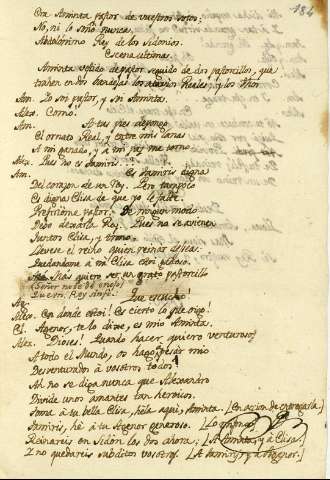 184
Era Aminta pastor de vuestros sotos:
No, ni lo soñó nunca.
Abdolonimo Rey de los Sidonios.
Escena ultima.
Aminta vestido de pastor seguido de dos pastorcillos, que
trahen en dos bandejas los atavios Reales; y los dhos
Am. Yo soy pastor, y soy Aminta.
Alex. Como!
Am. A tus pies depongo
El ornato Real, y entre mis
A mi ganado, y á mi paz me torno
Alex. Pues no es Tamiris?
Am. Es Tamiris digna
Del corazon de un Rey. Pero tampoco
Es digna Elisa de que yo le falte.
Prefirióme pastor, De ningun modo
Debo dexarla Rey. Pues no se avienen
Juntos Elisa, y trono.
Llevese el reino quien reinar desea:
Quedandome á mi Elisa esto pidoio.
Mas quiero ser un grato pastorcillo
(Señor no se os enoje)
Que un Rey
Ag. Que escucho!
Alex. Con donde estoi! Es cierto lo que oigo!
El. Agenor, te lo dixe, es mio Aminta.
Alex. Dioses! Quando hacer quiero venturosos
A todo el Mundo, os hago, á pesar mio
Desventurado á vosotros todos!
Ah no se diga nunca que Alexandro
Divide unos amantes tan hermosos.
Toma á tu bella Elisa, hela aqui, Aminta. [En accion de entregarla.]
Tamiris, hé á tu Agenor generoso.
Reinareis en Sidón los dos ahora; [A Aminta, y á Elisa.]
Y no quedareis subditos vosotros. [A Tamiris y á Agenor.]